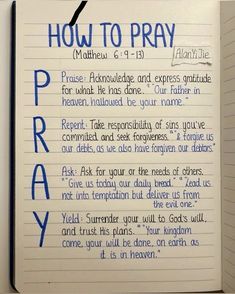 HOW TO PRAY
(Matthew 6:9-13)
AlanYiJie
P
Praise: Acknowledge and express gratitude
for what He has done. "Our Father in
heaven, hallowed be your name."
R
Repent: Take responsibility of sins you've
commited and seek forgiveness. "& forgive us
our debts, as we also have forgiven our debtors."
A
Ask: Ask for your or the needs of others.
"Give us today our daily bread." "Lead us
not into temptation but deliver us from
the evil one."
Y
Yield: Surrender your will to God's will,
and trust His plans. "Your kingdom
come, your will be done, on earth as
it is in heaven."